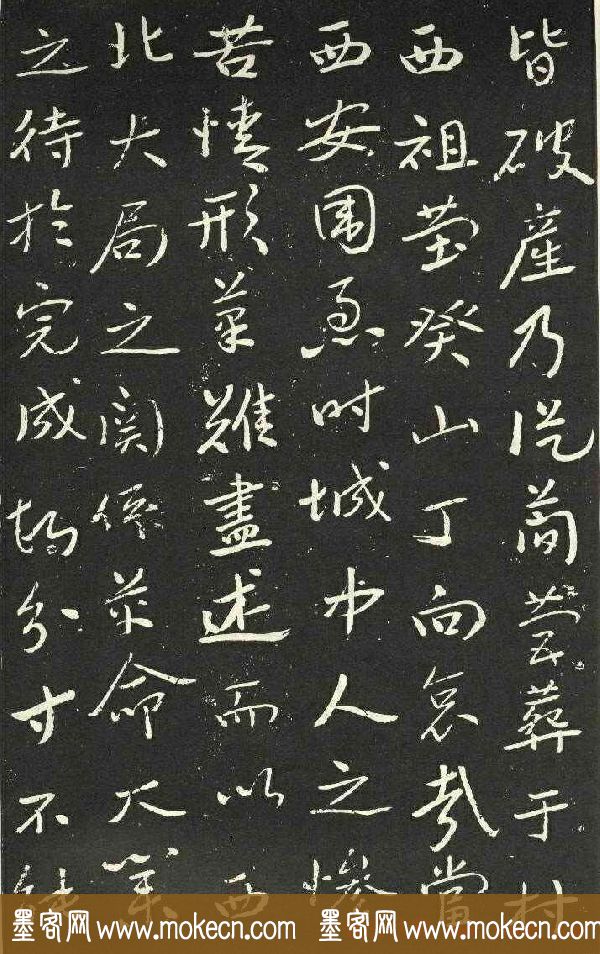 皆破產乃從簡營葬于村
西祖塋癸山丁向哀哉當
西安圍急時城中人之慘
苦情形筆難盡述而以西
北大局之関係革命大業
之待於完成均分寸不能
墨客网 www.mokecn.com 墨客网 www.mokecn.com